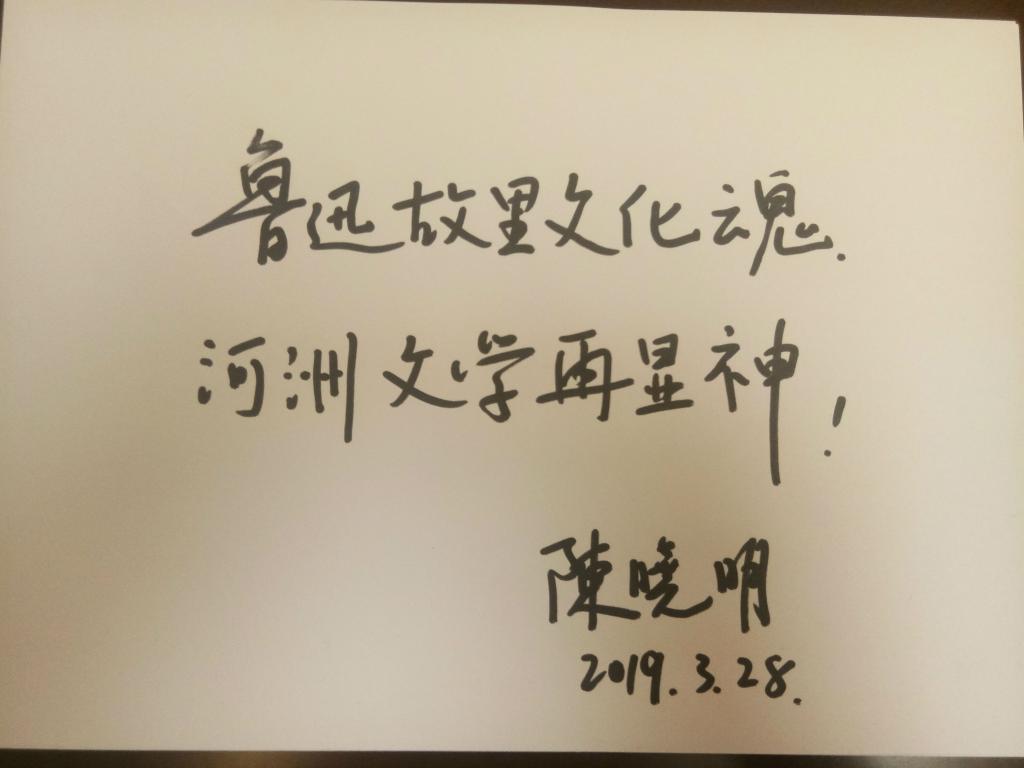 鲁迅故里文化魂.
河洲文学再显神!
陳晓明
2019.3.28.